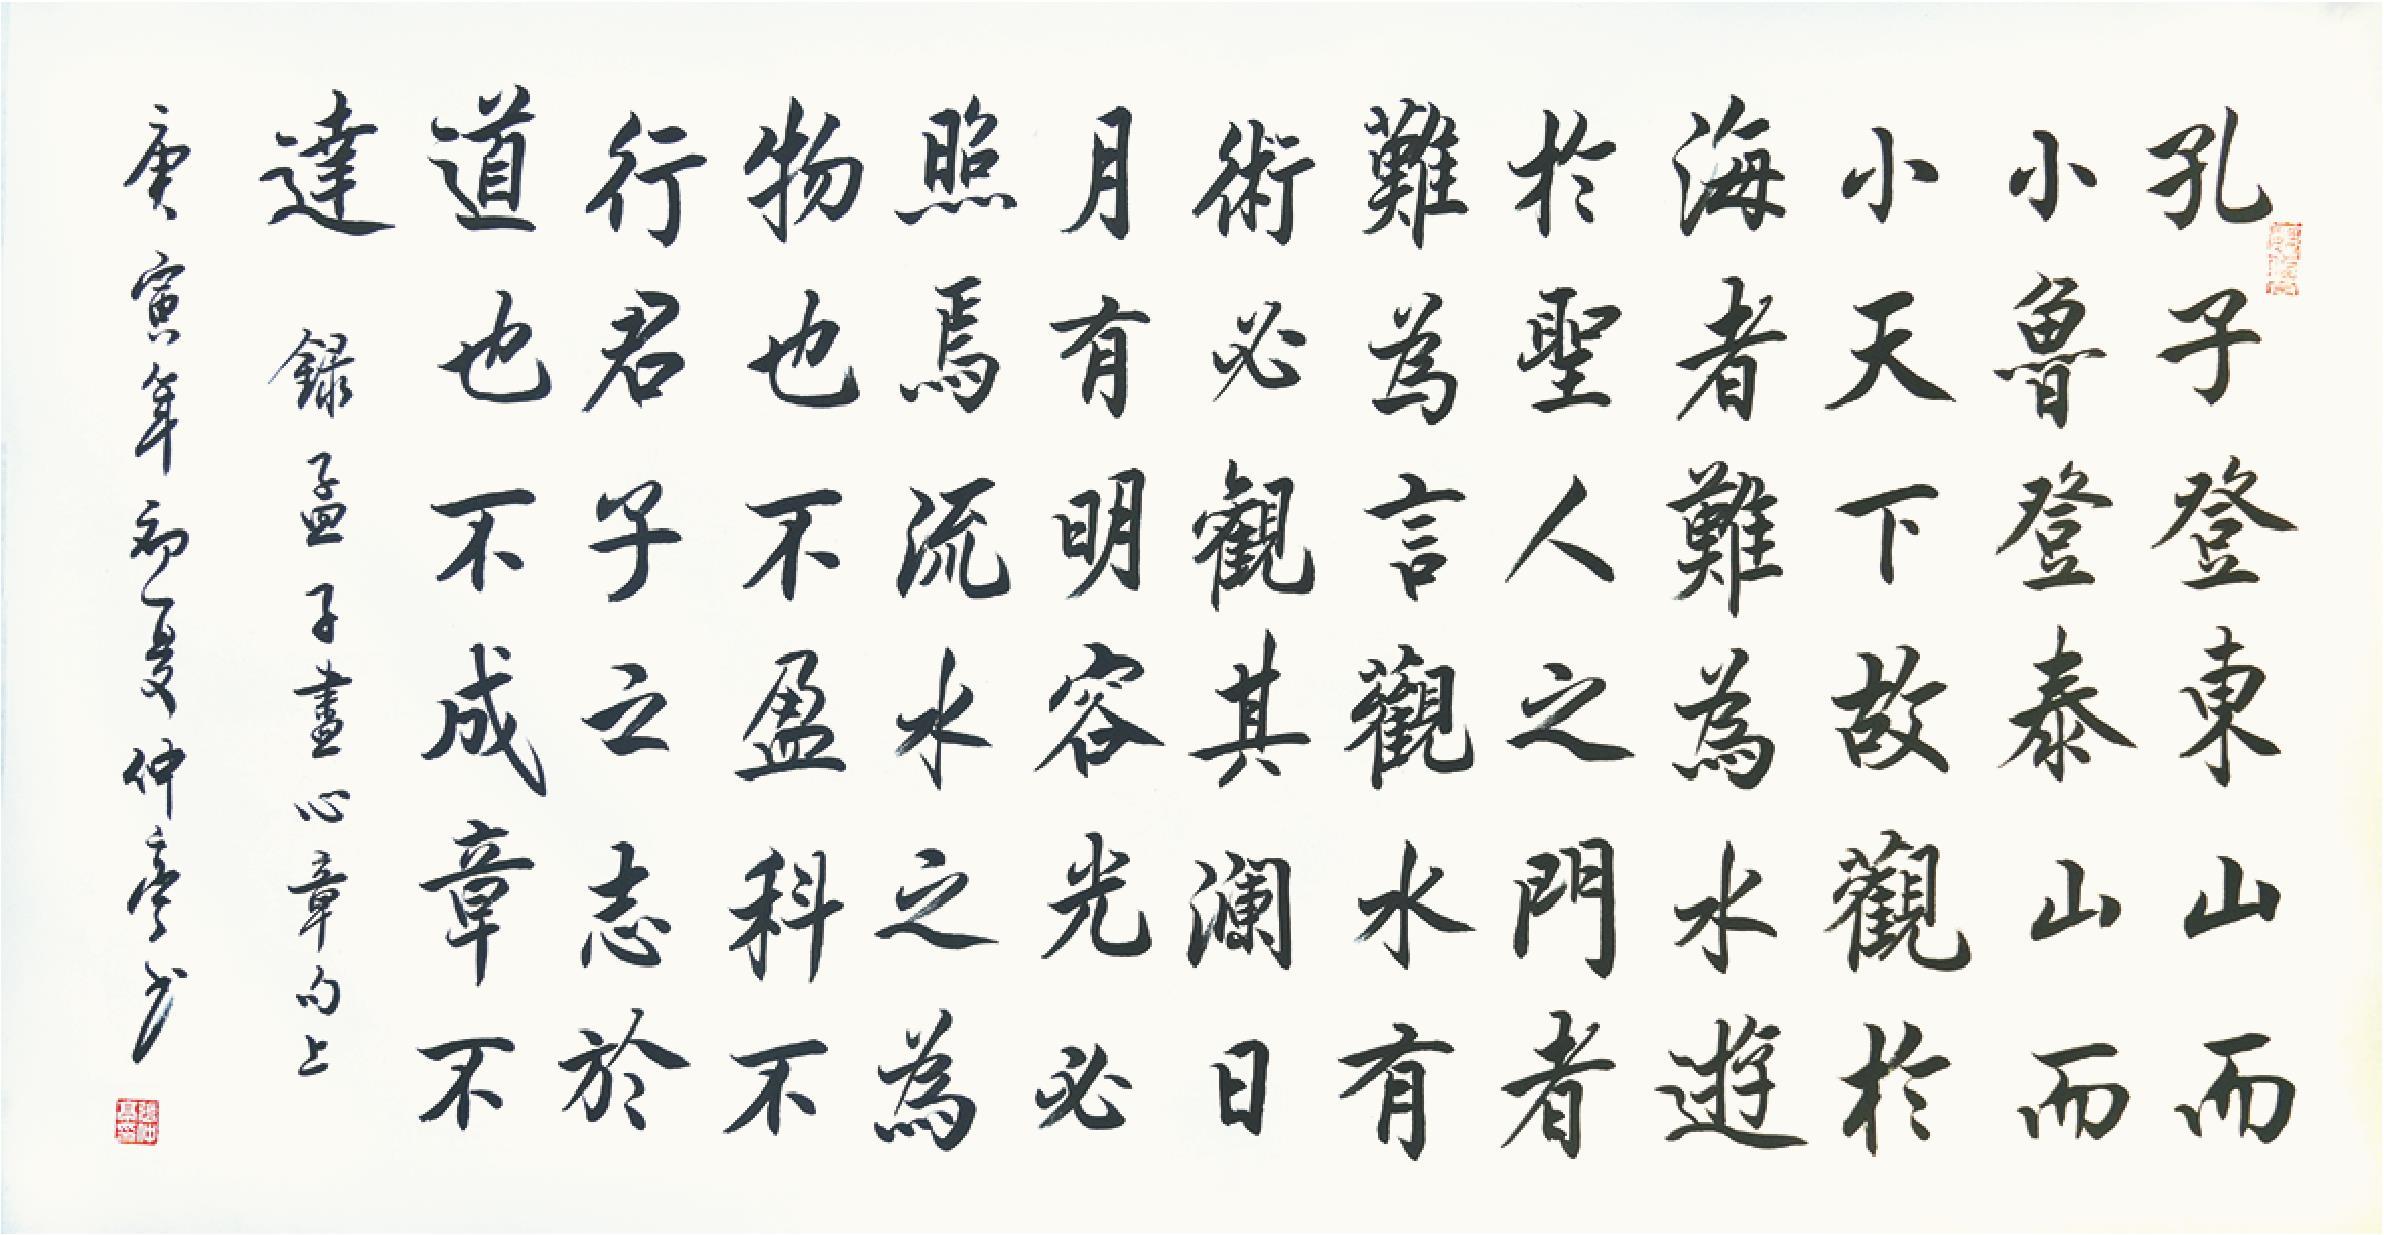 孔子登東山而
小魯登泰山而
小天下故觀於
海者難為水遊
於聖人之門者
難為言觀水有
術必觀其瀾日
月有明容光必
照焉流水之為
物也不盈科不
行君子之志於
道也不成章不
達 錄孟子盡心章句上
庚寅年初夏仲亭书